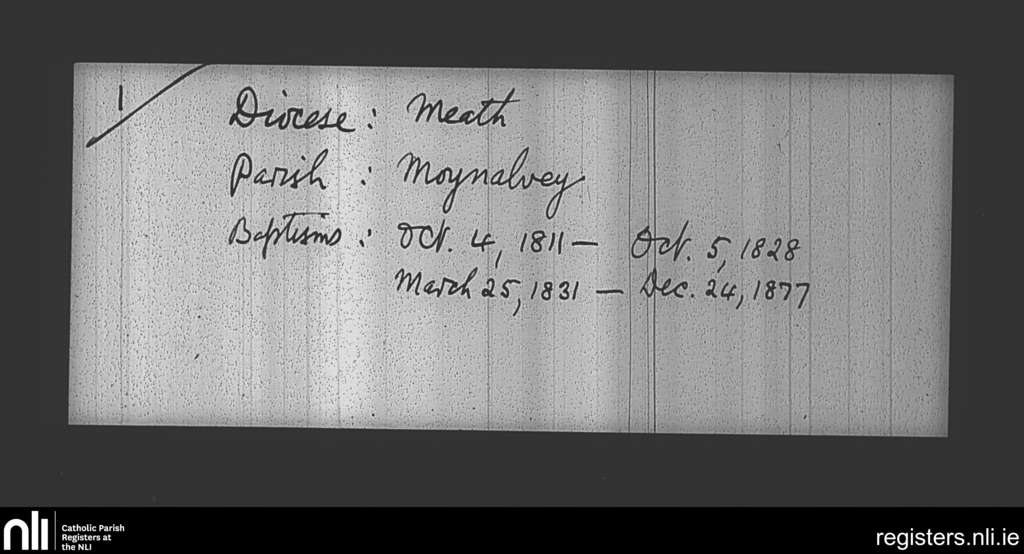 1
Diocese : Meath
Parish : Moynalvey
Baptisms : Oct. 4, 1811 — Oct. 5, 1828
March 25, 1831 — Dec. 24, 1877
nli
Catholic Parish
Registers at
the NLI
registers.nli.ie